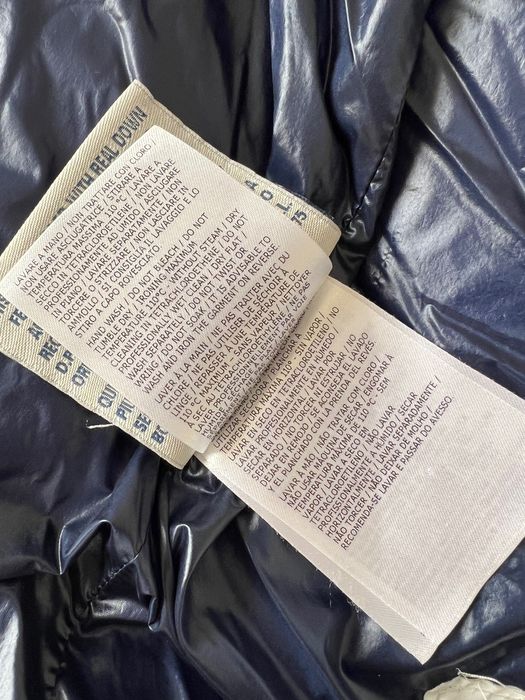 WITH REAL DOWN
LAVARE A MANO / NON TRATTARE CON CLORO /
NON USARE ASCIUGATRICE / STIRARE A
TEMPERATURA MASSIMA 110 °C. LAVARE A
SECCO IN TETRACLOROETILENE / NON LAVARE
PROFESSIONALMENTE AD UMIDO / ASCIUGARE
PIANO / LAVARE SEPARATAMENTE / NON
TORCERE O STRIZZARE / NON LASCIARE IN
AMMOLLO / SI CONSIGLIA IL LAVAGGIO E LO
STIRO A CAPO ROVESCIATO.
HAND WASH / DO NOT BLEACH / DO NOT
TUMBLE DRY / IRONING MAXIMUM
TEMPERATURE 110°C, WITHOUT STEAM / DRY
CLEANING IN TETRACHLOROETHYLENE / DO NOT
PROFESSIONALLY WET CLEAN / DRY FLAT /
WASH SEPARATELY / DO NOT TWIST OR
WRING / DO NOT SOAK / IT IS ADVISABLE TO
WASH AND IRON THE GARMENT ON REVERSE
LAVER À LA MAIN / NE PAS TRAITER AVEC DU
CHLORE / NE PAS UTILISER DE SÉCHOIR À
LINGE / REPASSER À UNE TEMPÉRATURE DE
110 °C MAXIMUM, SANS VAPEUR / NETTOYER
À SEC
MÁXIMA 110° SIN VAPOR/
LAVAR EN SECO CON TETRACLOROETILENO / NO
LAVAR PROFESIONALMENTE EN HÚMEDO /
SECAR EN HORIZONTAL / LAVAR POR
SEPARADO / NO RETORCER NI ESTRUJAR / NO
DEJAR EN REMOJO / SE ACONSEJA EL LAVADO
Y EL PLANCHADO CON LA PRENDA DEL REVÉS.
LAVAR À MÃO / NÃO TRATAR COM CLORO / NÃO
USAR MÁQUINA DE SECAR / ENGOMAR À
TEMPERATURA MÁXIMA DE 110 °C - SEM
VAPOR / LAVAR A SECO EM
TETRACLOROETILENO / NÃO LAVAR
PROFISSIONALMENTE A ÚMIDO / SECAR
HORIZONTALMENTE / LAVAR SEPARADAMENTE /
NÃO TORCER / NÃO DEIXAR DE MOLHO /
RECOMENDA-SE LAVAR E PASSAR DO AVESSO.